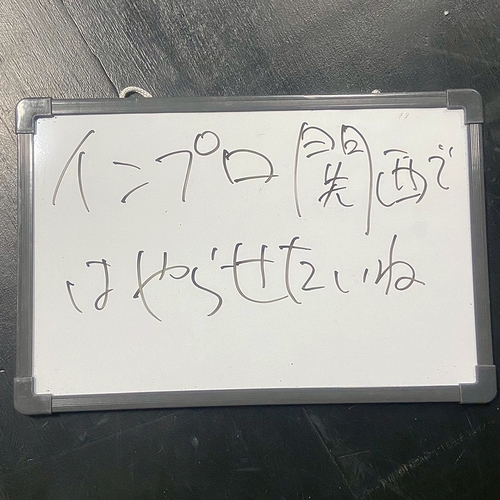 インプロ関西で
はやらせたいね